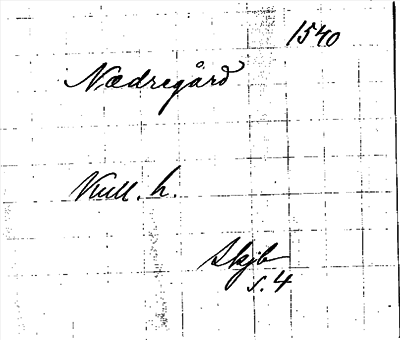 1540
Nædregård
Kull. h.
Skjb
s. 4